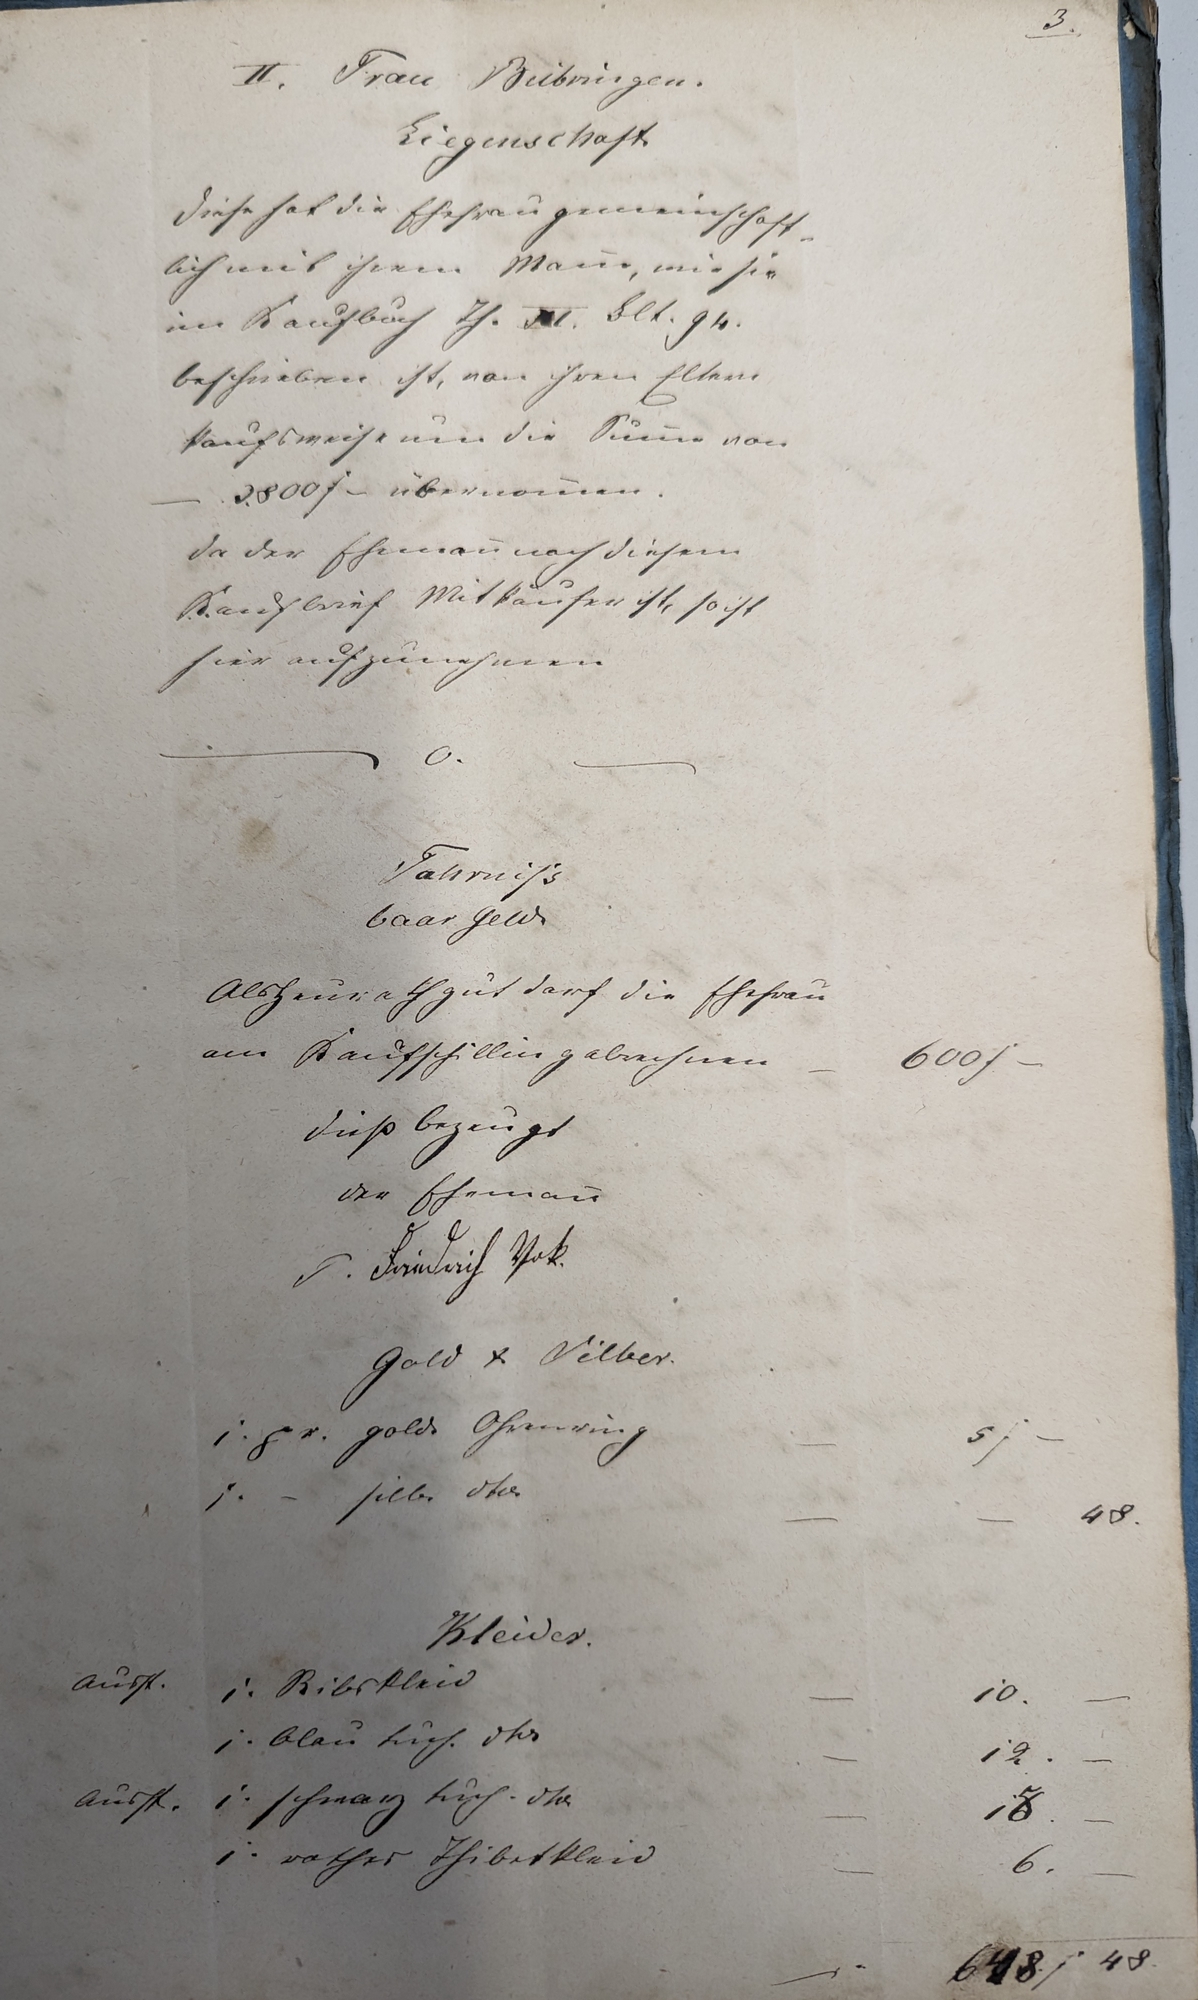 3.
II. Frau Beibringen.
Liegenschaft
Diese hat die Ehefrau gemeinschaft-
lich mit ihrem Mann, wie sie
im Kaufbuch Th. XI. Blt. 94.
beschrieben ist, von ihren Eltern
kaufsweise um die Summe von
— 2800 f — übernommen.
da der Ehemann nach diesem
Kaufbrief Mitkäufer ist, so ist
hier aufzunehmen
— 0. —
Fahrniß
baar Geld.
Als Heurathgut darf die Ehefrau
am Kaufschilling abrechnen — 600 f —
dieß bezeugt
der Ehemann
T. Friedrich Vok.
Gold & Silber.
1. pr. gold. Ohrenring — 5 f —
1. — silb. dto — — 48.
Kleider.
Ausst. 1. Ribskleid — 10. —
1. blau tuch. dto — 12. —
Ausst. 1. schwarz tuch. dto — —
1. rothes Thibetkleid — 6. —
48.